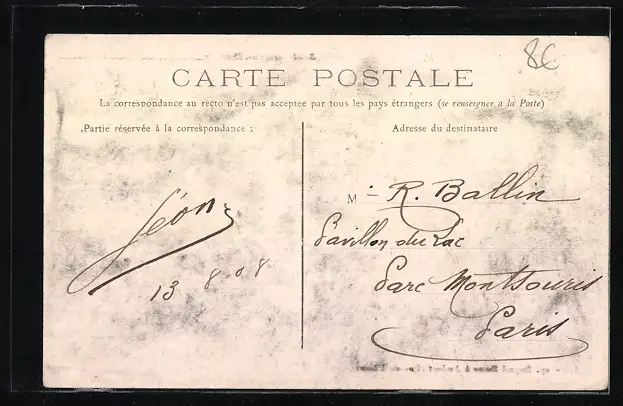 8€
CARTE POSTALE
La correspondance au recto n'est pas acceptée par tous les pays étrangers (se renseigner a la Poste)
Partie réservée à la correspondance :
Léon
13 8-08
Adresse du destinataire
M - R. Ballin
Pavillon du Lac
Parc Montsouris
Paris